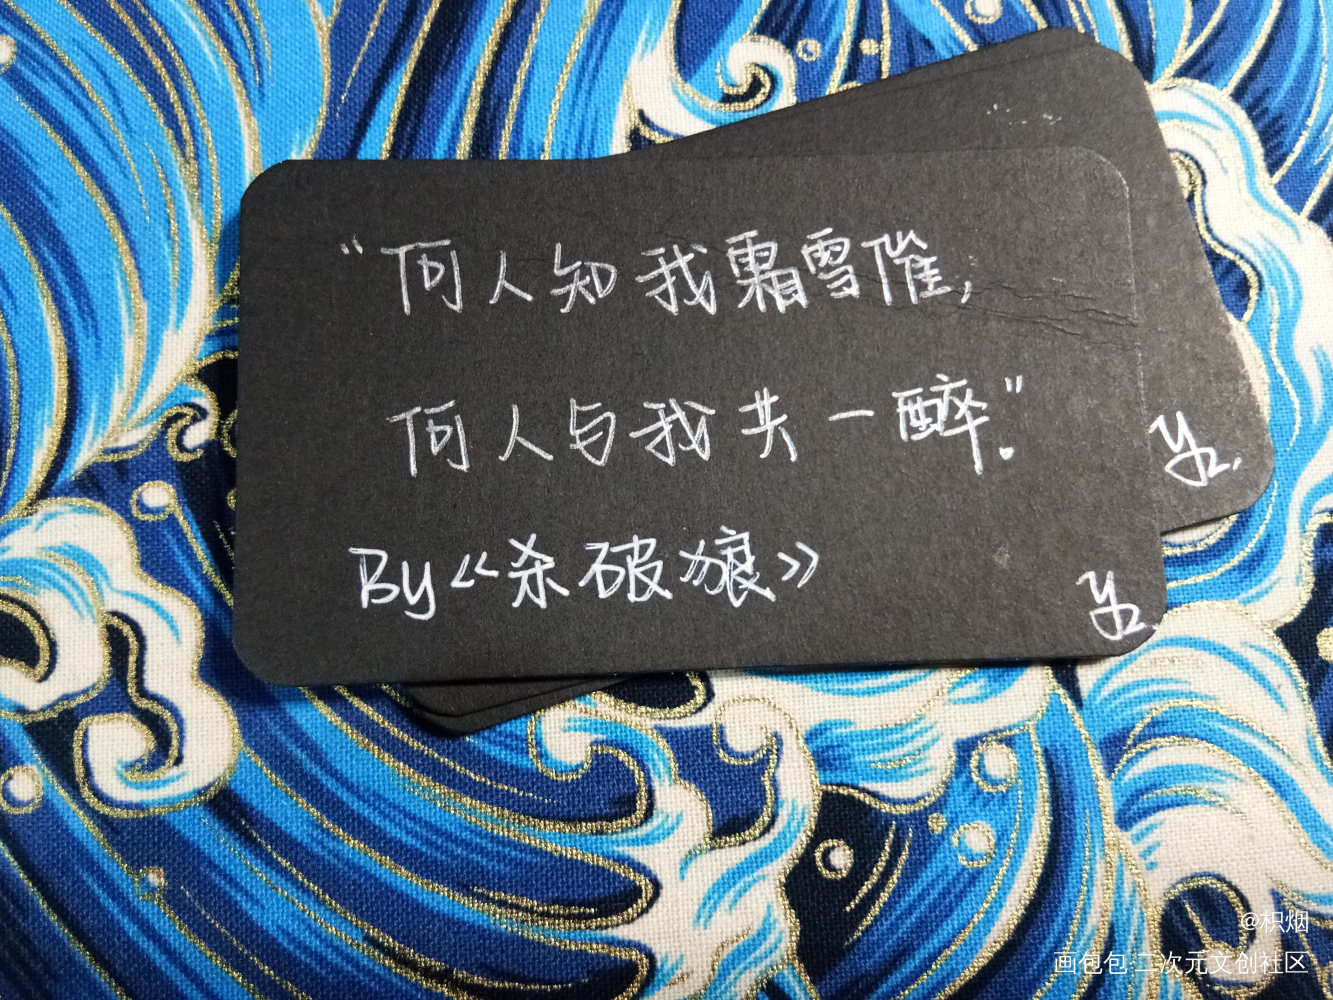 “何人知我霜雪催，
何人与我共一醉。”
By《杀破狼》
y2.
y2.
@枳烟
画包包·二次元文创社区